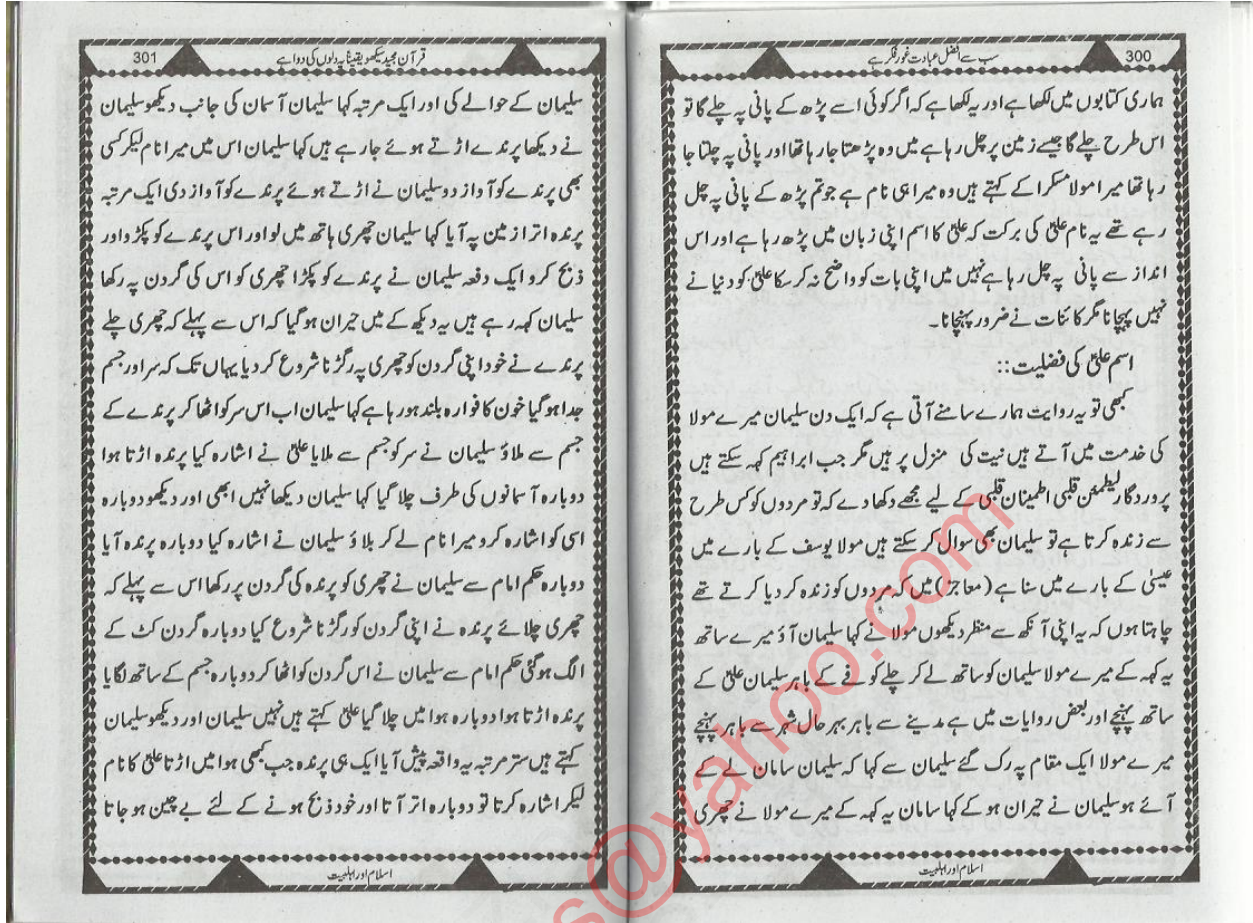 سب سے افضل عبادت غور فکر ہے
300
ہماری کتابوں میں لکھا ہے اور یہ لکھا ہے کہ اگر کوئی اسے پڑھ کے پانی پہ چلے گا تو
اس طرح چلے گا جیسے زمین پر چل رہا ہے میں وہ پڑھتا جا رہا تھا اور پانی پہ چلتا جا
رہا تھا میرا مولا مسکرا کے کہتے ہیں وہ میرا ہی نام ہے جو تم پڑھ کے پانی پہ چل
رہے تھے یہ نام علیؑ کی برکت کہ علیؑ کا اسم اپنی زبان میں پڑھ رہا ہے اور اس
انداز سے پانی پہ چل رہا ہے نہیں میں اپنی بات کو واضح نہ کر سکا علیؑ کو دنیا نے
نہیں پہچانا مگر کائنات نے ضرور پہنچانا۔
اسم علیؑ کی فضلیت::
کبھی تو یہ روایت ہمارے سامنے آتی ہے کہ ایک دن سلیمان میرے مولا
کی خدمت میں آتے ہیں نیت کی منزل پر ہیں مگر جب ابراہیم کہہ سکتے ہیں
پروردگار لیطمئن قلبی اطمینان قلبی کے لیے مجھے دکھا دے کہ تو مردوں کو کس طرح
سے زندہ کرتا ہے تو سلیمان بھی سوال کر سکتے ہیں مولا یوسف کے بارے میں
عیسیٰ کے بارے میں سنا ہے (معاجز) میں کہ مردوں کو زندہ کر دیا کرتے تھے
چاہتا ہوں کہ یہ اپنی آنکھ سے منظر دیکھوں مولا نے کہا سلیمان آؤ میرے ساتھ
یہ کہہ کے میرے مولا سلیمان کو ساتھ لے کر چلے کوفے کے باہر سلیمان علیؑ کے
ساتھ پہنچے اور بعض روایات میں ہے مدینے سے باہر بہر حال شہر سے باہر پہنچے
میرے مولا ایک مقام پہ رک گئے سلیمان سے کہا کہ سلیمان سامان لے کے
آئے ہو سلیمان نے حیران ہو کے کہا سامان یہ کہہ کے میرے مولا نے چھری
اسلام اور اہلبیت
قرآن مجید سیکھو یقیناً یہ دلوں کی دوا ہے
301
سلیمان کے حوالے کی اور ایک مرتبہ کہا سلیمان آسمان کی جانب دیکھو سلیمان
نے دیکھا پرندے اڑتے ہوئے جا رہے ہیں کہا سلیمان اس میں میرا نام لیکر کسی
بھی پرندے کو آواز دو سلیمان نے اڑتے ہوئے پرندے کو آواز دی ایک مرتبہ
پرندہ اترا زمین پہ آیا کہا سلیمان چھری ہاتھ میں لو اور اس پرندے کو پکڑو اور
ذبح کرو ایک دفعہ سلیمان نے پرندے کو پکڑا چھری کو اس کی گردن پہ رکھا
سلیمان کہہ رہے ہیں یہ دیکھ کے میں حیران ہو گیا کہ اس سے پہلے کہ چھری چلے
پرندے نے خود اپنی گردن کو چھری پہ رگڑنا شروع کر دیا یہاں تک کہ سر اور جسم
جدا ہو گیا خون کا فوارہ بلند ہو رہا ہے کہا سلیمان اب اس سر کو اٹھا کر پرندے کے
جسم سے ملاؤ سلیمان نے سر کو جسم سے ملایا علیؑ نے اشارہ کیا پرندہ اڑتا ہوا
دوبارہ آسمانوں کی طرف چلا گیا کہا سلیمان دیکھا نہیں ابھی اور دیکھو دوبارہ
اسی کو اشارہ کرو میرا نام لے کر بلاؤ سلیمان نے اشارہ کیا دوبارہ پرندہ آیا
دوبارہ حکم امام سے سلیمان نے چھری کو پرندہ کی گردن پر رکھا اس سے پہلے کہ
چھری چلائے پرندہ نے اپنی گردن کو رگڑنا شروع کیا دوبارہ گردن کٹ کے
الگ ہو گئی حکم امام سے سلیمان نے اس گردن کو اٹھا کر دوبارہ جسم کے ساتھ لگایا
پرندہ اڑتا ہوا دوبارہ ہوا میں چلا گیا علیؑ کہتے ہیں نہیں سلیمان اور دیکھو سلیمان
کہتے ہیں ستر مرتبہ یہ واقعہ پیش آیا ایک ہی پرندہ جب کبھی ہوا میں اڑتا علیؑ کا نام
لیکر اشارہ کرتا تو دوبارہ اتر آتا اور خود ذبح ہونے کے لئے بے چین ہو جاتا
اسلام اور اہلبیت
s@yahoo.com